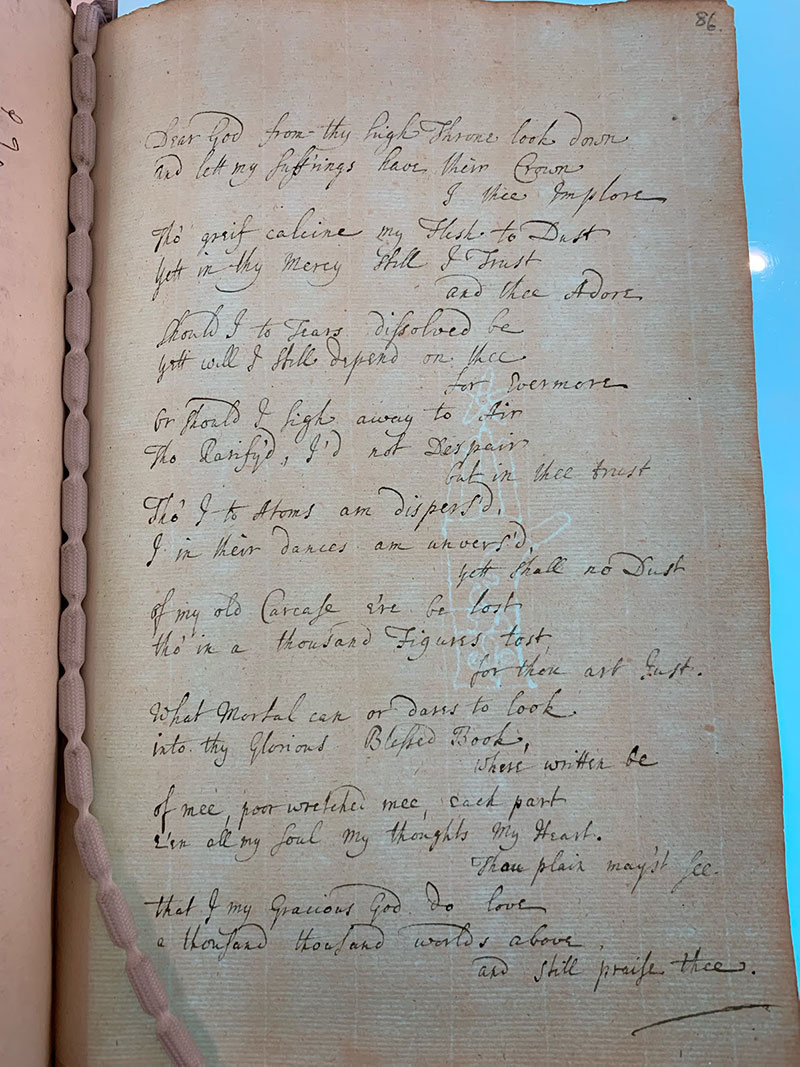 86.
Dear God from thy high Throne look down
and lett my suff'rings have their Crown
I thee Implore
Tho' greif calcine my Flesh to Dust
Yett in thy Mercy still I Trust
and thee Adore
should I to Tears dissolved be
yett will I still depend on thee
for Evermore
Or should I sigh away to Air
Tho Rarify'd, I'd not Despair
but in thee trust
Tho' I to Atoms am dispers'd,
I in their dances am unvers'd,
yett shall no Dust
of my old Carcase e're be lost
tho' in a thousand Figures tost,
for thou art Just.
What Mortal can or dares to look
into thy Glorious Blessed Book,
where written be
of mee, poor wretched mee, each part
E'en all my Soul my thoughts My Heart.
Thou plain may'st see.
that I my Gracious God do love
a thousand thousand worlds above,
and still praise thee.